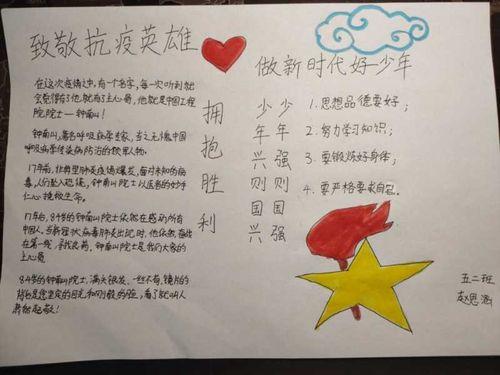 致敬抗疫英雄
做新时代好少年
在这次疫情之中,有一个名字,每一次听到就
会觉得有了他,就有了主心骨,他就是中国工程
院院士——钟南山!
钟南山,著名呼吸病学专家,当之无愧中国
呼吸病学传染病防治的领军人物。
17年前,非典型肺炎疫情爆发,面对未知的病
毒,人们坠入恐慌,钟南山院士以医者的妙手
仁心挽救生命。
17年后,84岁的钟南山院士依然在感动所有
中国人。当新冠状病毒肺炎出现时,他依然奋战
在第一线,寻找良药,钟南山院士是我们大家的
主心骨
84岁的钟南山院士,满头银发,一丝不苟,镜片的
背后是您坚定的目光和刚毅的脸,看了就叫人
肃然起敬!
拥抱胜利
少年兴则国兴
少年强则国强
1.思想品德要好;
2.努力学习知识;
3.要锻炼好身体;
4.要严格要求自己。
五二班
赵恩